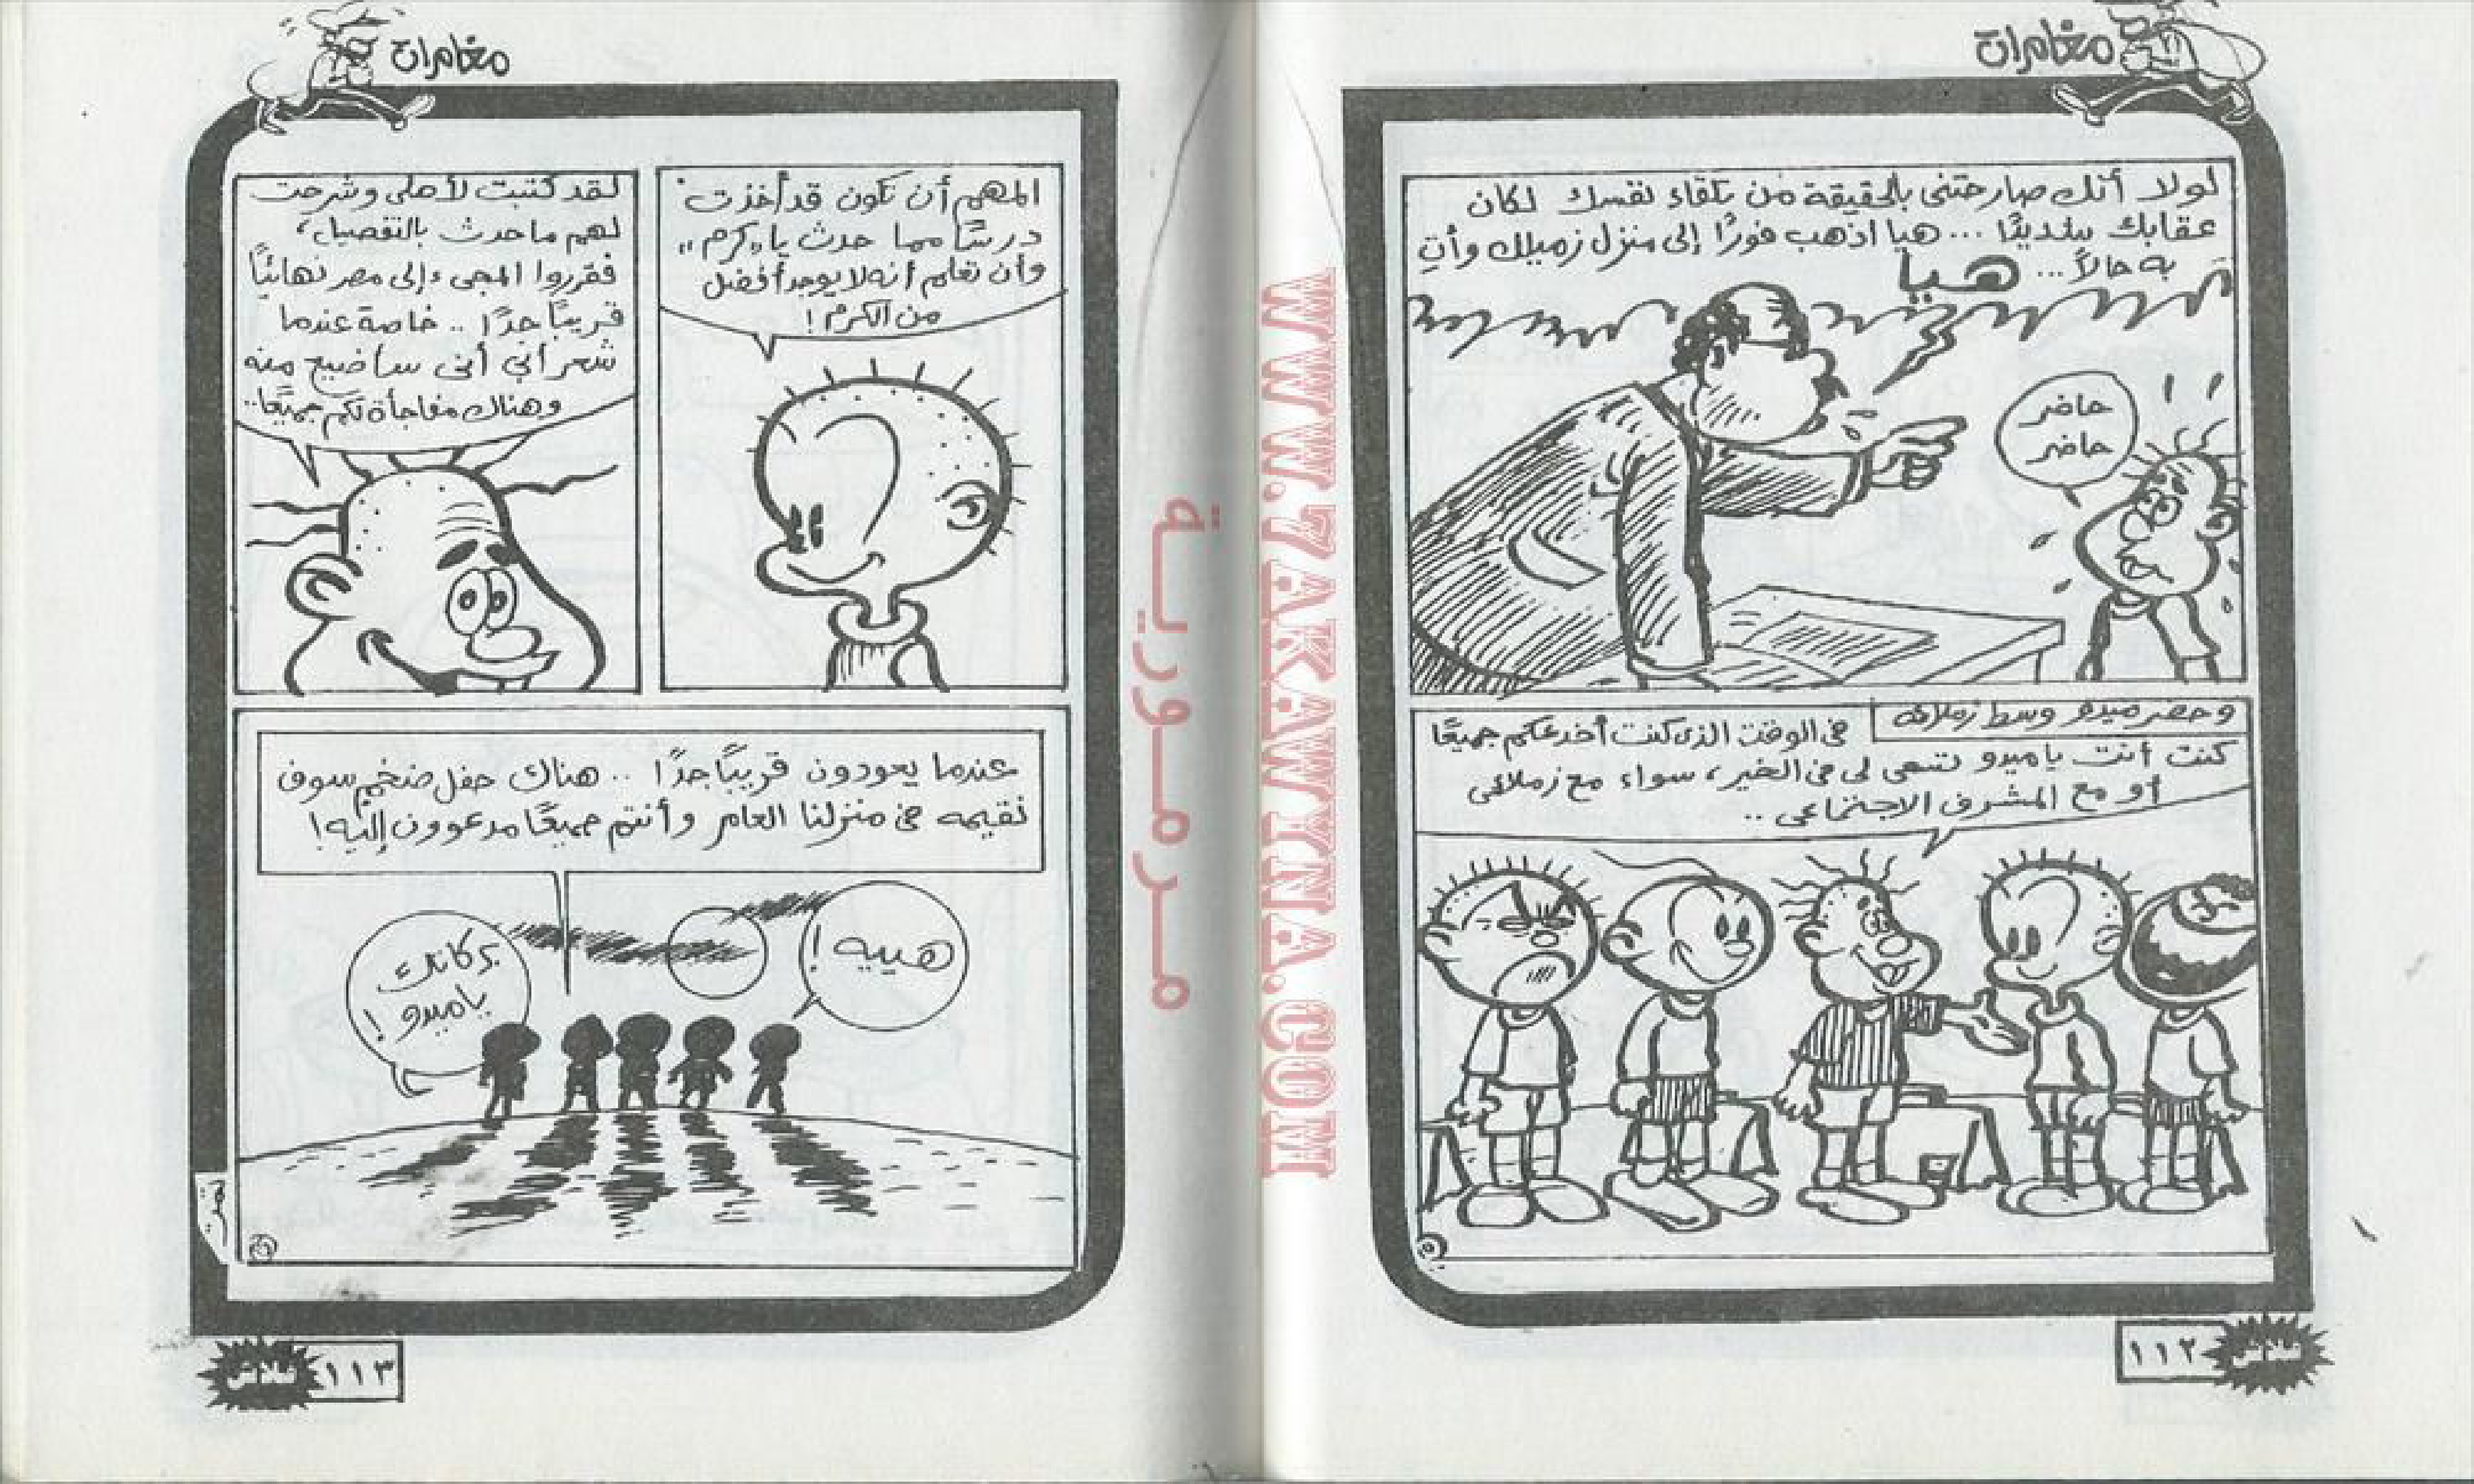 مغامرات
لولا أنك صارحتنى بالحقيقة من تلقاء نفسك لكان
عقابك شديدًا ... هيا اذهب فورًا إلى منزل زميلك وأتِ
به حالاً ... هيا
حاضر
حاضر
وحضر ميدو وسط زملائه
فى الوقت الذى كنت أخدعكم جميعًا
كنت أنت يا ميدو تسعى لى فى الخير، سواء مع زملائى
أو مع المشرف الاجتماعى ..
١١٢
فلاش
مغامرات
المهم أن تكون قد أخذت
درسًا مما حدث يا "كرم"
وأن تعلم أنه لا يوجد أفضل
من الكرم !
لقد كتبت لأهلى وشرحت
لهم ما حدث بالتفصيل،
فقرروا المجىء إلى مصر نهائيًا
قريبًا جدًا .. خاصة عندما
شعر أبى أنى سأضيع منه
وهناك مفاجأة لكم جميعًا..
عندما يعودون قريبًا جدًا .. هناك حفل ضخم سوف
نقيمه فى منزلنا العامر وأنتم جميعًا مدعوون إليه !
هييه !
بركاتك
يا ميدو !
١١٣
فلاش
مرمورية
WWW.7AKAWINA.COM